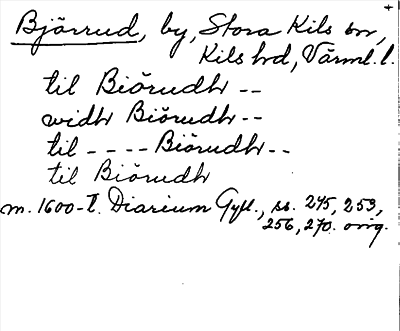 Bjärrud, by, Stora Kils sn,
Kils hd, Värml. l.
til Biörudh --
widh Biörudh --
til ---- Biörudh --
til Biörudh
m. 1600-t. Diarium Gyll., ss. 245, 253,
256, 270. orig.